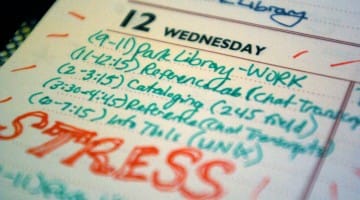 Library
12 WEDNESDAY
(9-11) Park Library - WORK
(11-12:15) Reference Lab (Chat-Transcrip
(2-3:15) Cataloging (245 field)
(3:30-4:45) Reference (Chat Transcripts)
(6-7:15) Into This (UNIV)
STRESS
-11) Park Library